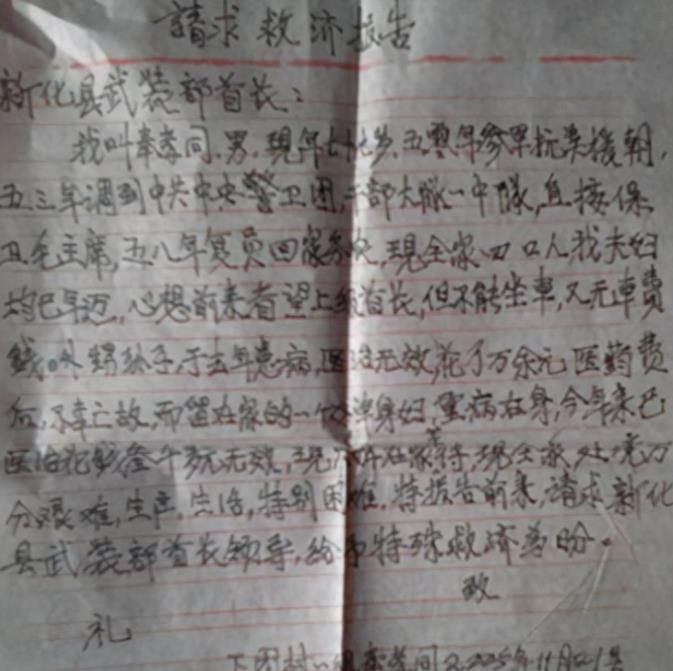 請求救济报告
新化县武装部首长：
我叫奉孝同.男.现年七十岁.五零年参军抗美援朝，
五三年调到中共中央警卫团，干部大队一中队，直接保
卫毛主席，五八年复员回家务农，现全家四口人我夫妇
均已年迈，心想前来看望上级首长，但不能坐車，又无車费
钱。外甥孙子，于去年患病，医治无效花了万余元医药费
后，不幸亡故，而留在家的一个单身妇，重病在身，今年来已
医治花影叁千多元无效，现在家待，现全家处境万
分艰难，生产.生活，特别困难.特报告前来，請求新化
县武装部首长领导，给予特殊救济为盼。
致
礼
下团村八组奉孝同 2005年11月21号